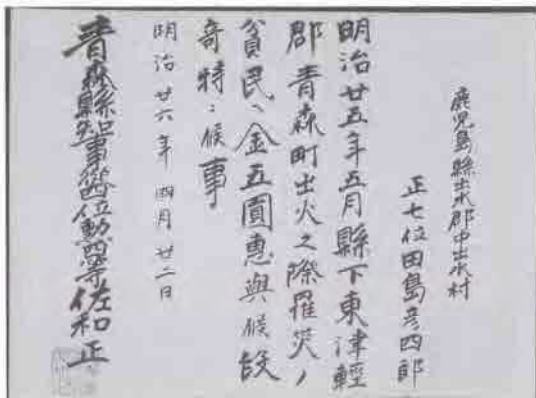 鹿児島縣出水郡中出水村
正七位田島彦四郎
明治廿五年五月縣下東津輕
郡青森町出火之際罹災ノ
貧民ヘ金五圓惠與候段
奇特ニ候事
明治廿六年四月廿二日
青森縣知事從四位勲四等佐和正